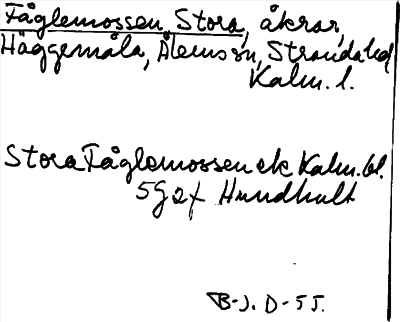 Fåglemossen, Stora, åkrar,
Häggemåla, Ålems sn, Stranda hd
Kalm. l.
Stora Fåglemossen ek Kalm. bl.
5G2f Hundhult
B-J. D-55.